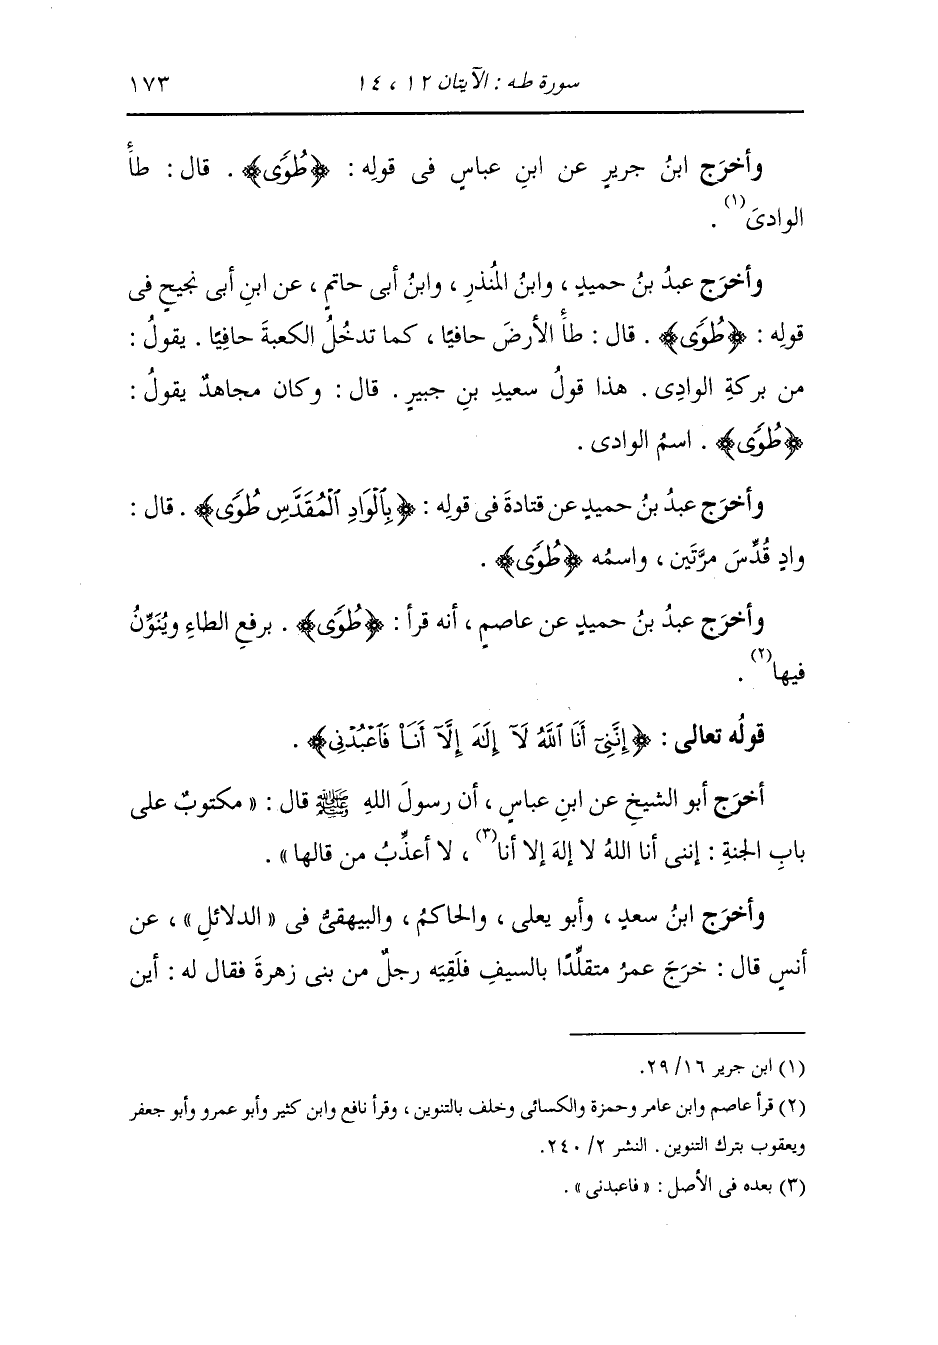 سورة طه : الآيتان ١٢ ، ١٤ ١٧٣
وأخرَج ابنُ جريرٍ عن ابنِ عباسٍ فى قولِه : ﴿طُوًى﴾ . قال : طأْ
الوادىَ(١) .
وأخرَج عبدُ بنُ حميدٍ ، وابنُ المُنذرِ ، وابنُ أبى حاتمٍ ، عن ابنِ أبى نجيحٍ فى
قولِه : ﴿طُوًى﴾ . قال : طأْ الأرضَ حافيًا ، كما تدخُلُ الكعبةَ حافِيًا . يقولُ :
من بركةِ الوادِى . هذا قولُ سعيدِ بنِ جبيرٍ . قال : وكان مجاهدٌ يقولُ :
﴿طُوًى﴾ . اسمُ الوادى .
وأخرَج عبدُ بنُ حميدٍ عن قتادةَ فى قولِه : ﴿بِٱلْوَادِ ٱلْمُقَدَّسِ طُوًى﴾ . قال :
وادٍ قُدِّسَ مرَّتَين ، واسمُه ﴿طُوًى﴾ .
وأخرَج عبدُ بنُ حميدٍ عن عاصمٍ ، أنه قرأ : ﴿طُوًى﴾ . برفعِ الطاءِ ويُنَوِّنُ
فيها(٢) .
قولُه تعالى : ﴿إِنَّنِىٓ أَنَا ٱللَّهُ لَآ إِلَٰهَ إِلَّآ أَنَا۠ فَٱعْبُدْنِى﴾ .
أخرَج أبو الشيخِ عن ابنِ عباسٍ ، أن رسولَ اللهِ ﷺ قال : « مكتوبٌ على
بابِ الجنةِ : إننى أنا اللهُ لا إلهَ إلا أنا(٣) ، لا أعذِّبُ من قالها » .
وأخرَج ابنُ سعدٍ ، وأبو يعلى ، والحاكمُ ، والبيهقىُّ فى « الدلائلِ » ، عن
أنسٍ قال : خرَجَ عمرُ متقلِّدًا بالسيفِ فلَقِيَه رجلٌ من بنى زهرةَ فقال له : أين
(١) ابن جرير ١٦/ ٢٩.
(٢) قرأ عاصم وابن عامر وحمزة والكسائى وخلف بالتنوين ، وقرأ نافع وابن كثير وأبو عمرو وأبو جعفر
ويعقوب بترك التنوين . النشر ٢/ ٢٤٠.
(٣) بعده فى الأصل : « فاعبدنى » .